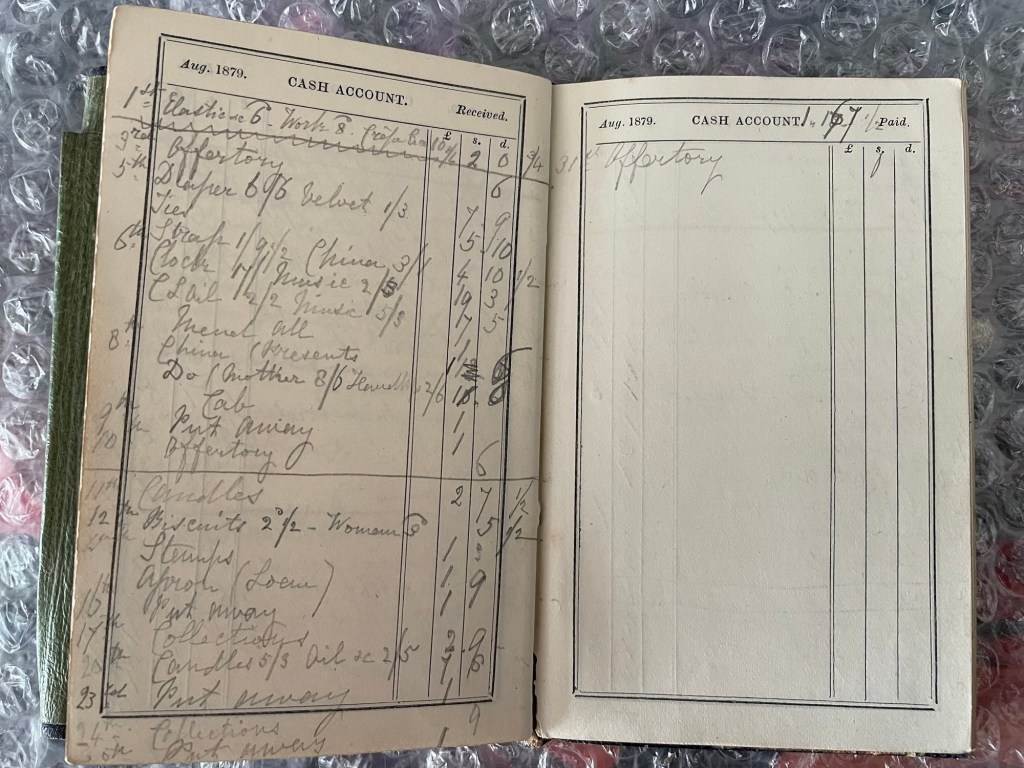 Aug. 1879. CASH ACCOUNT. Received.
1st Elastic &c 6 - Work 8
£ s. d.
3rd Offertory 6
5th Draper 6/6 Velvet 1/3 7 9
Ties 5 10
6th Strap 1/9 1/2 China 3/1 4 10 1/2
Clock 17/1 1/2 Music 2/ 19 3
Oil 2/2 Music 5/3 7 5
Mend all 1
8th China (Presents 1
Do (Mother 8/6 2/6
Cab 1
9th Put away 1
10th Offertory 6
11th Candles 2 7 1/2
12th Biscuits 2 1/2 - Woman 3 5 1/2
Stamps 1 3
Apron (Loem) 1 9
16th Put away 1
17th Collections 2 9
20th Candles 5/3 Oil &c 2/5 7 8
23rd Put away 1
24th Collections 9
Put away 1
Aug. 1879. CASH ACCOUNT. Paid.
£ s. d.
31st Offertory